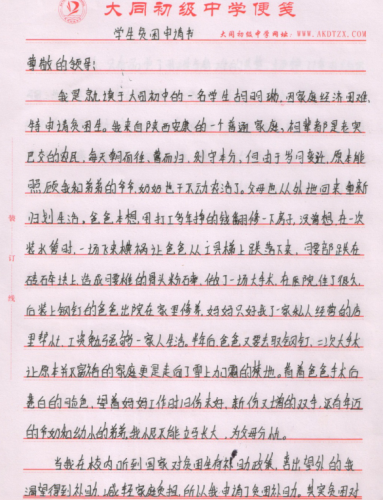 大同初级中学便笺
学生贫困申请书
大同初级中学网址：WWW.AKDTZX.COM
尊敬的领导：
我是就读于大同初中的一名学生胡明瑞，因家庭经济困难，
特申请贫困生。我来自陕西安康的一个普通家庭，祖辈都是老实
巴交的农民，每天朝而往，暮而归，刻守本分，但由于岁月变迁，原本能
照顾我和弟弟的爷爷奶奶也干不动农活了。父母也从外地回来重新
归划生活，爸爸本想，用打工多年挣的钱翻修一下房子，没曾想，在一次
装水管时，一场飞来横祸让爸爸从工具梯上跌落下来，腰部跌在
破石车块上，造成腰椎的骨头粉石卑，做了一场大手术，在医院，住了很久，
后装上钢钉的爸爸出院在家里修养，妈妈只好到了一家私人经营的店
里帮忙，工资勉强的一家人生活。半年后，爸爸又要去取钢钉，二次大手术
让原本并不富裕的家庭更是走向了雪上加霜的境地。看着爸爸手术后
苍白的脸色，望着妈妈工作时旧伤未好，新伤又增的双手，还有年迈
的爷奶和幼小的弟弟，我恨不能立马长大，为父母分忧。
当我在校内听到国家对贫困生有补助政策，喜出望外的我
渴望得到补助，减轻家庭负担，所以我申请了贫困补助。其实贫困对
装订线